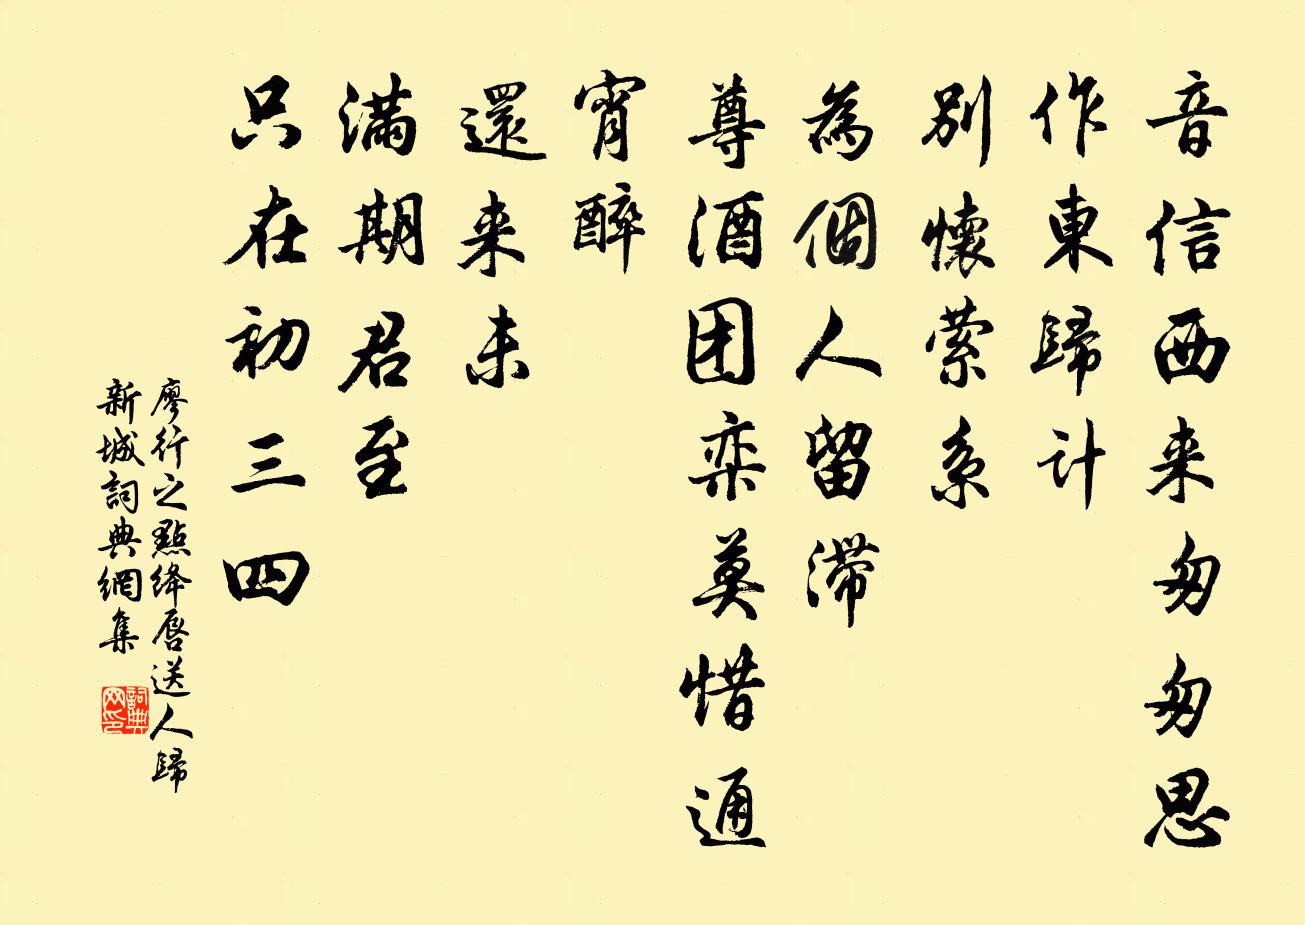 音信西来匆匆思
作東歸计
别懷萦系
為個人留滞
尊酒团栾莫惜通
宵醉
還来未
满期君至
只在初三四
廖行之點绛唇送人歸
新城詞典網集
詞典
网印